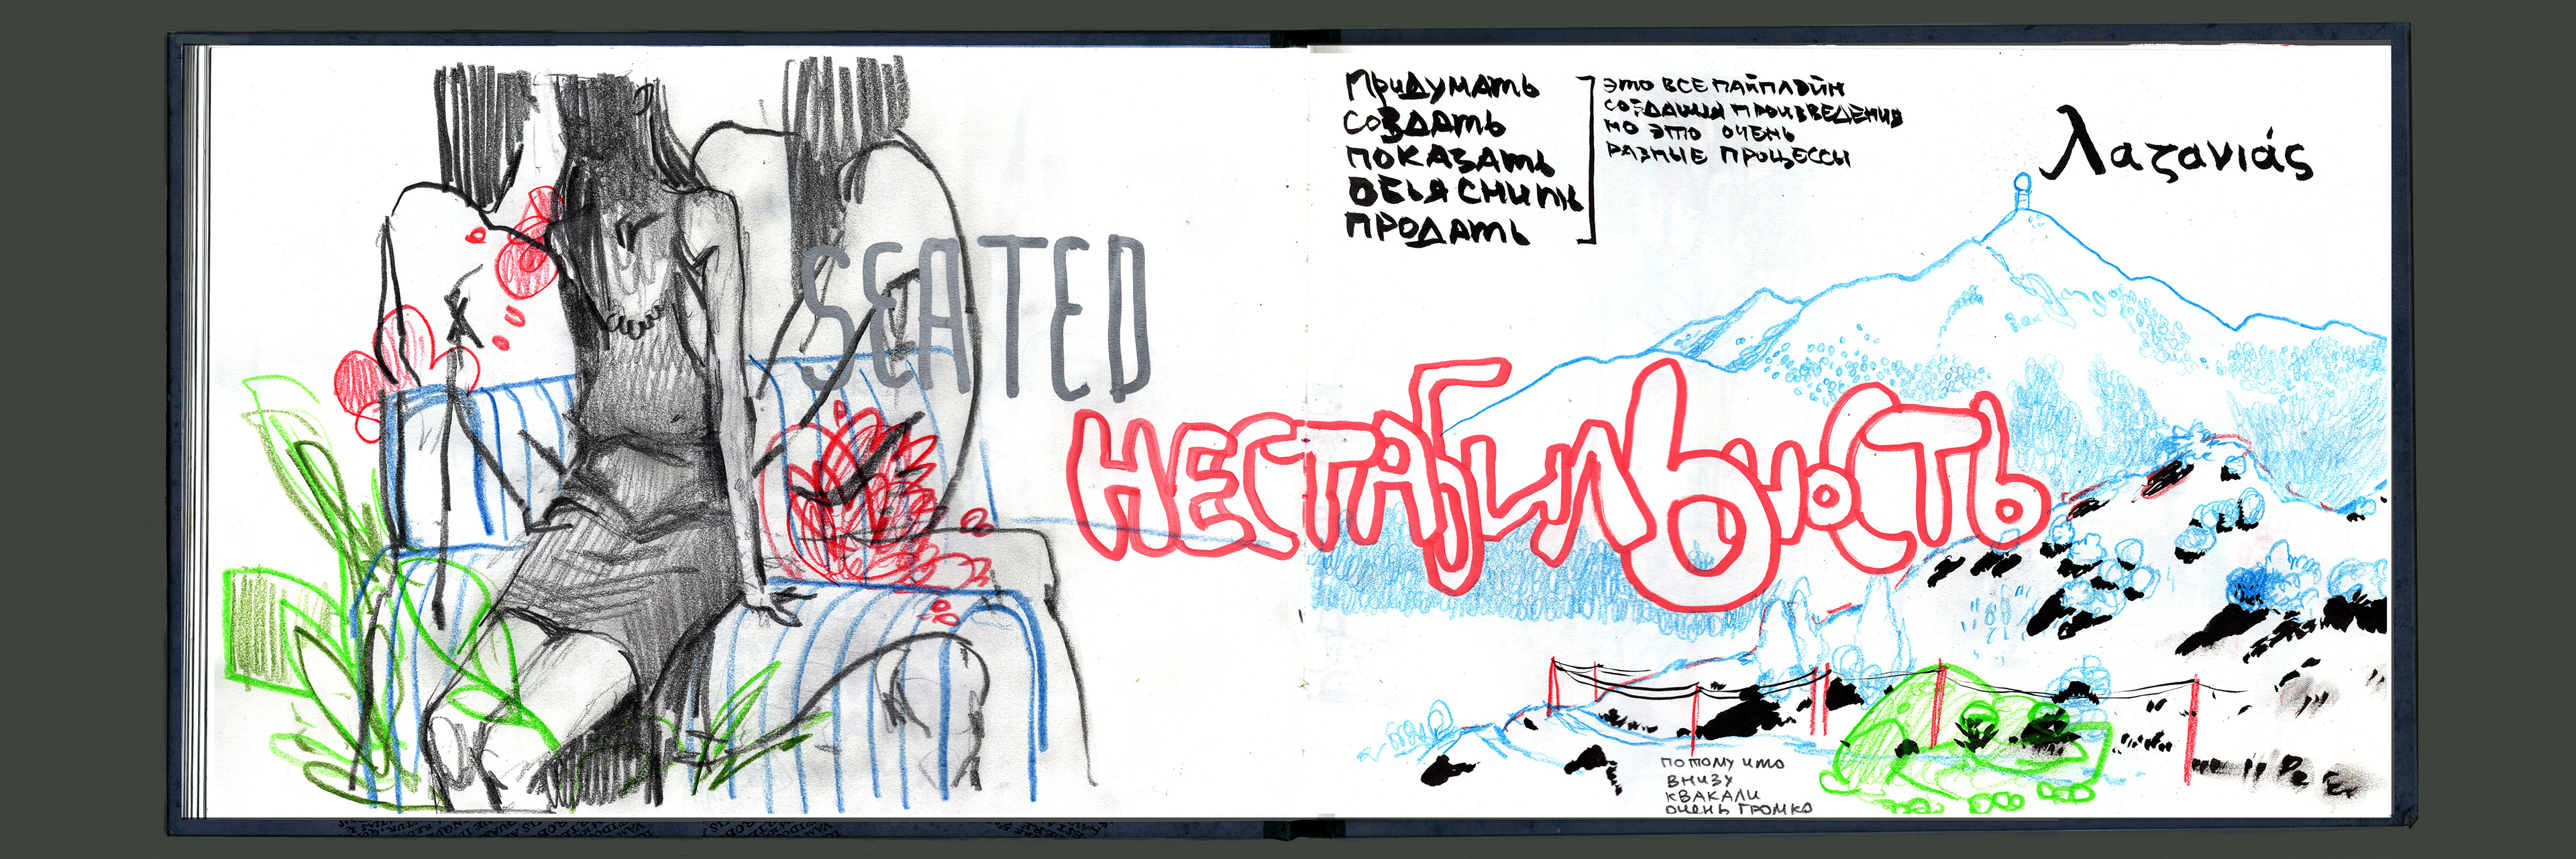 SEATED
НЕСТАБИЛЬНОСТЬ
Придумать
создать
показать
обьяснить
продать
это все пайплайн
создания произведения
но это очень
разные процессы
Λαζανιάς
потому что
внизу
квакали
очень громко